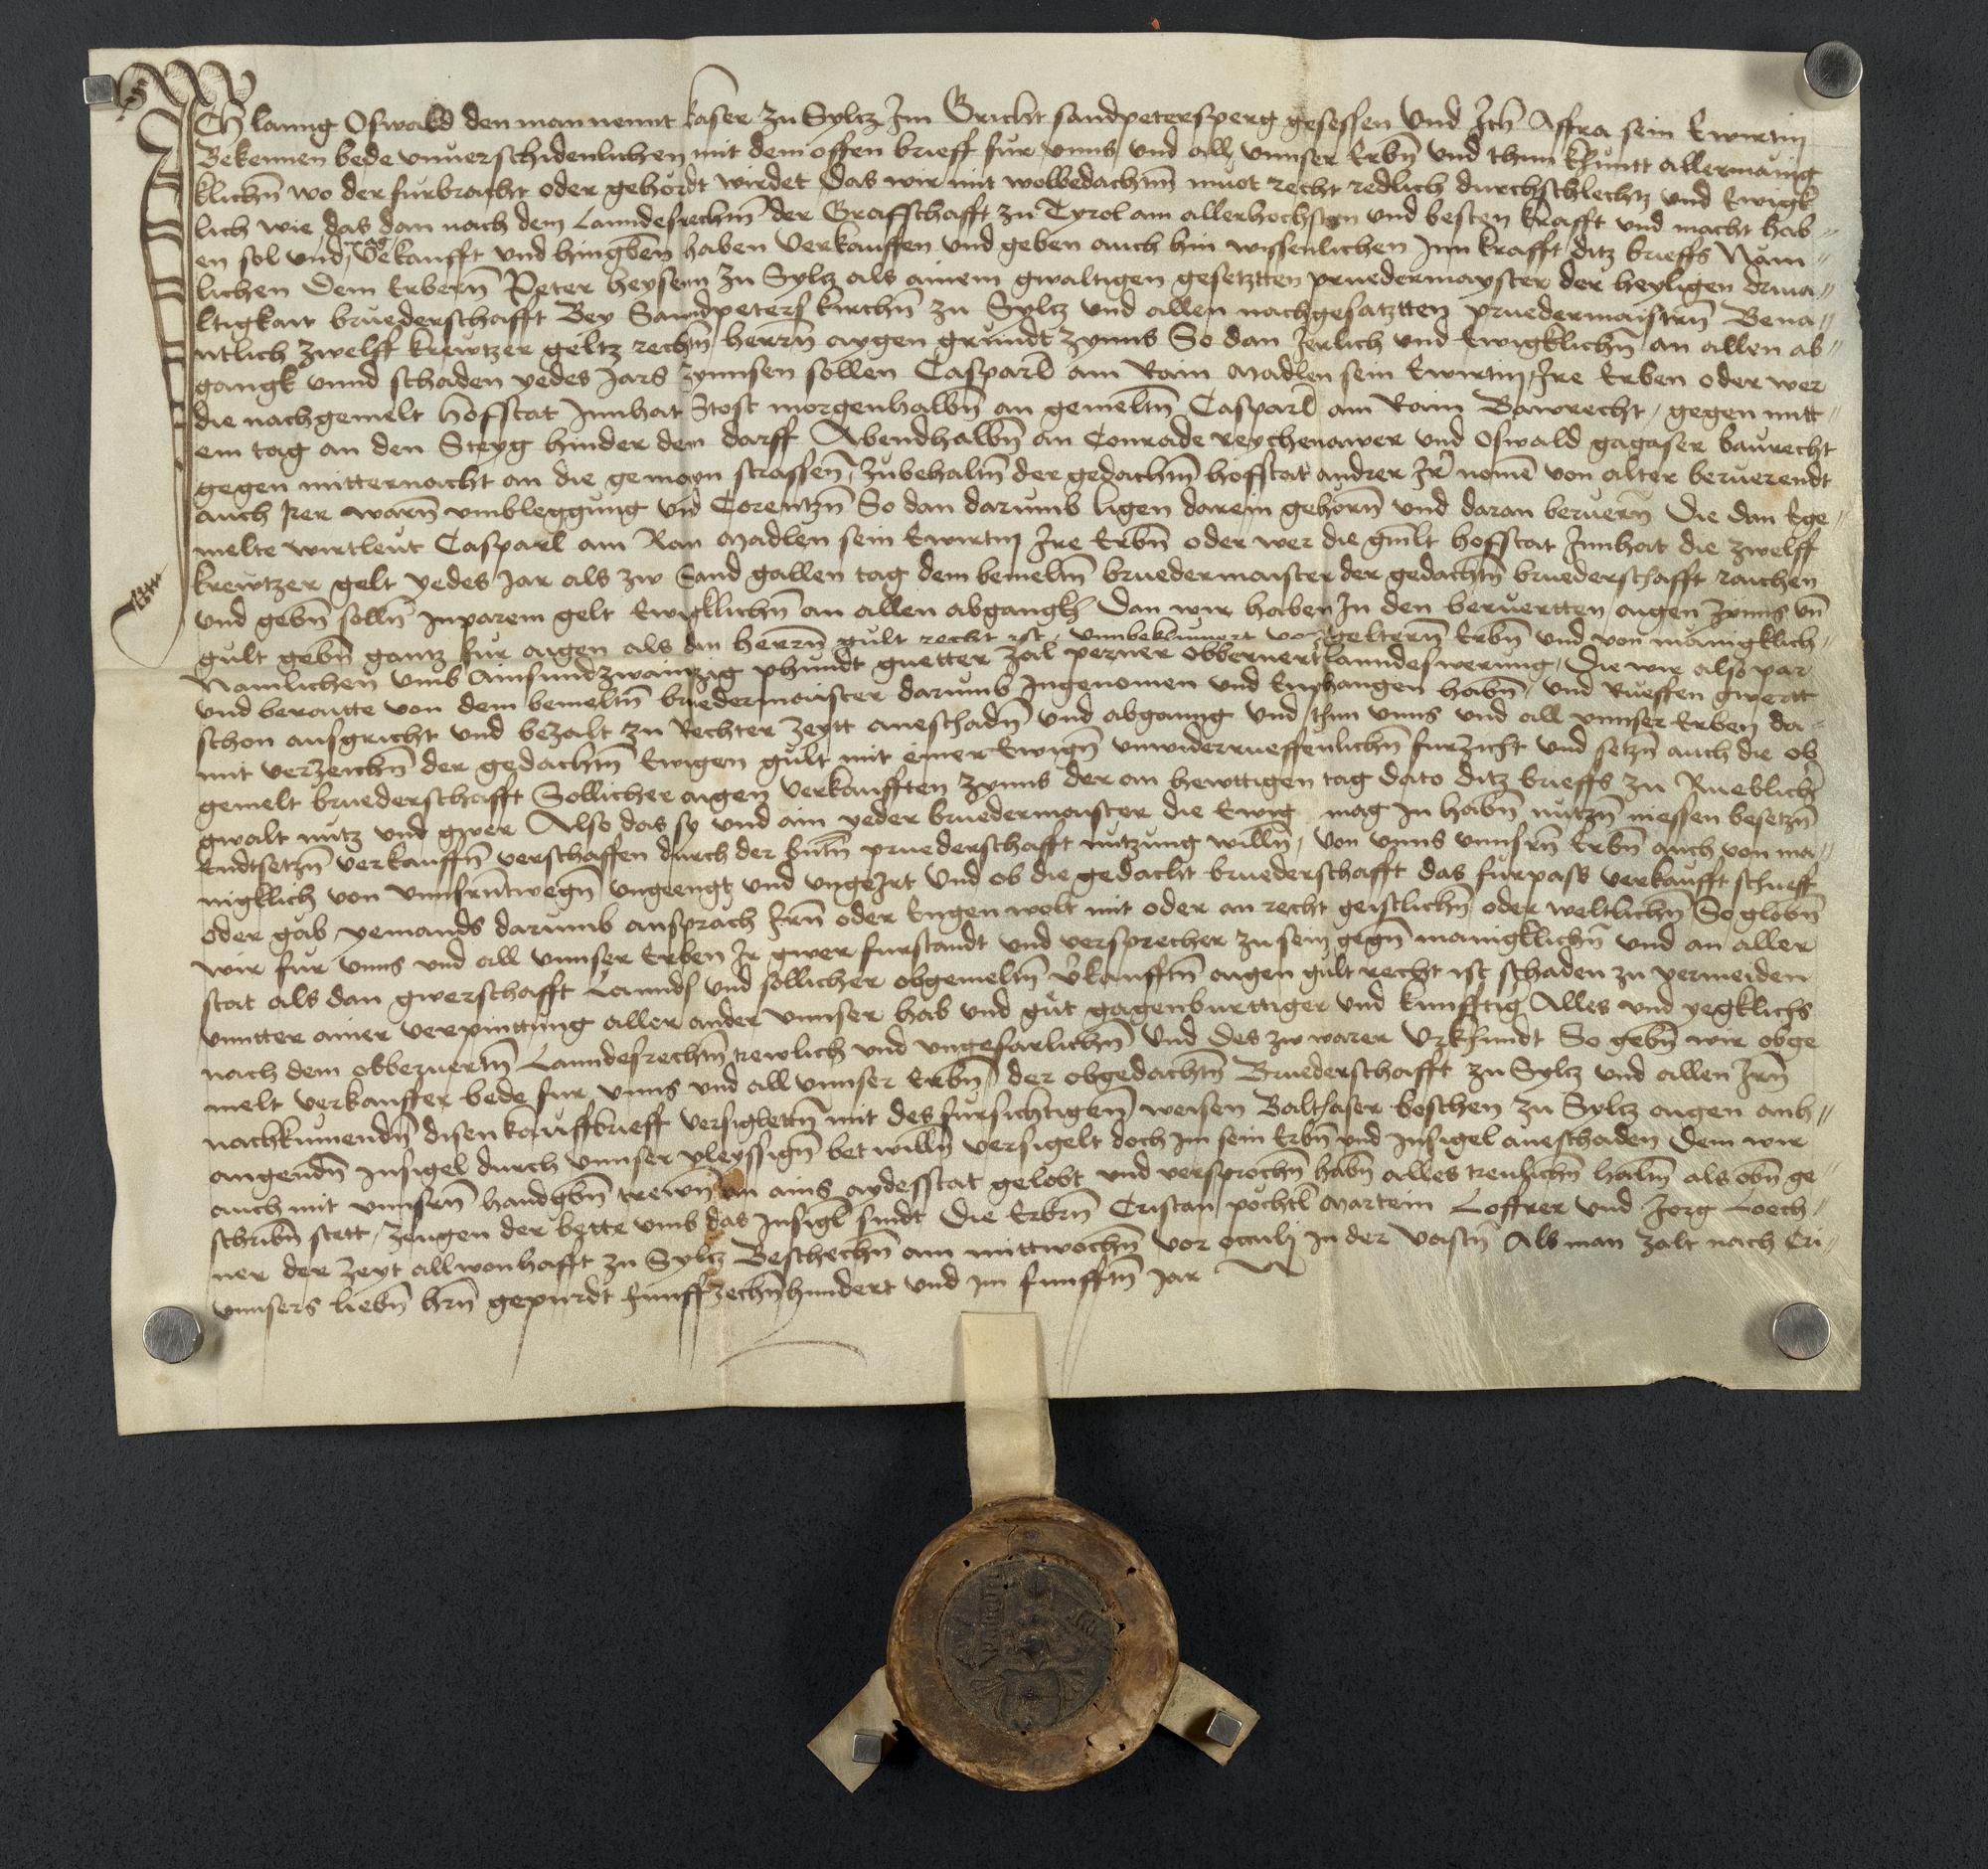 ICh lanng Oswald den man nennt kaser zu Syltz Im Gricht sandpetersperg gesessen Und Ich Affra sein Ewirtin
Bekennen bede unuerschidenlichen mit dem offen brieff fur unns und all unnser Erbn̄ und thun khuntt allermanig
klichn̄ wo der furbracht oder gehordt wirdet das wir mit wolbedachtm̄ muot recht redlich durchschlechtz und Ewigk
lich wie das dan nach dem Lanndesrechtn̄ der Graffschafft zu Tyrol am allerhochsten und besten krafft und macht hab
en sol und mag Vekaufft und hingeben haben Verkauffen und geben auch hin wissenlichen Inn krafft ditz brieffs Nam
lichen Dem Erbern̄ Peter heysenn zu Syltz als ainem gwaltigen gesetztten pruedermayster der heyligen driua
ltigkait bruederschafft Bey Sanndpeters kirchn̄ zu Syltz und allen nachgesatztten pruedermaistrn̄ Bena
ntlich zwelff krewtzer geltz rechtn̄ herrn̄ aygen grundt zynns So dan Jerlich und Ewigklichn̄ an allen ab
gangk unnd schaden yedes Jars zynnsen sollen Casparl am Rain Madlen sein Ewirtin, Ire Erben oder wer
die nachgemelt hoffstat Innhat Stost morgenhalbn̄ an gemeltn̄ Casparl am Rain Bawrecht, gegen mitt
em tag an den Steyg hinder dem darff Abendhalbn̄ an Conrade reychenawer und Oswald gagaser baurecht
gegen mitternacht an die gemayn strassen̄, zubehaltn̄ der gedachtn̄ hoffstat andrer Ir nomē von alter beruerendt
auch Irer warn̄ umbleggung und Corentzn̄ So dan darumb ligen darein gehorn̄ und daran beruern̄ Die dan Ege
melte wirtleut Casparl am Ran Madlen sein Ewirtin Ire Erbn̄ oder wer die gm̄lt hoffstat Innhat die zwelff
krewtzer gelt yedes Jar als zw Sand gallen tag dem bemeltn̄ bruedermaister der gedachtn̄ bruederschafft raichen
und gebn̄ solln̄ In parem gelt Ewigklichn̄ an allen abgangkh Dan wir haben In den beruertten aygen zynns un̄
gult gebn̄ gantz fur aygen als dan herrn̄ gult recht ist, unnbekumert vor geltern̄ Erbn̄ und von manigklich
Namlichen umb Ainsundzwaintzig phundt guetter zal perner obberuert lanndeswerung, Die wir also par
und beraitte von dem bemeltn̄ bruedermaister darumb Ingenomen und Enphangen habn̄, und Rueffen gwertt
schon ausgricht und bezalt zu Rechter zeytt aneschadn̄ und abganng und thun unns und all unnser Erben da
mit verzeichn̄ der gedachtn̄ Ewigen gult mit einer Ewign̄ unwiderrueffenlichn̄ furzicht und setzn̄ auch die ob
gemelt bruederschafft Sollicher aigen verkaufften zynns der an hewttigen tag dato ditz brieffs zu Rueblichr
gwalt nutz und gwer Also das sy und ain yeder bruedermaister die Ewig mag In habn̄ nutzn̄ niessen besetzn̄
Endtsetzn̄ verkauffn̄ verschaffen durch der gm̄tn̄ pruederschafft nutzung willn̄, von unns unnsrn̄ Erbn̄ auch von ma
nigklich von unnsrn̄twegn̄ ungeengt und ungeIrt Und ob die gedacht bruederschafft das furpass verkaufft schueff
oder gab, yemands darumb ansprach Irn̄ oder Engen wolt mit oder an recht geistlichn̄ oder weltlichn̄ So globn̄
wir fur unns und all unnser Erben Ir gwer furstandt und versprecher zu sein gegn̄ manigklichn̄ und an aller
stat als dan gwerschafft Lannds und sollicher obgemeltn̄ v̄kaufftn̄ aygen gult recht ist schaden zu vermeiden
unntter ainer verpinttung aller ander unnser hab und gut gagenburttiger und kunfftig Alles und yegklichs
nach dem obberuertn̄ Lanndesrechtn̄ trewlich und ungefarlichn̄ Und des zw warer Urkhundt So gebn̄ wir obge
melt verkauffer bede fur unns und all unnser Erbn̄ der obgedachtn̄ Bruederschafft zu Syltz und allen Irn̄
nachkumendn̄ disen kauffbrieff versigletn̄ mit des fursichtigen̄ weisen Balthaser beschen zu Syltz aygen anh
angendn̄ Insigel durch unnser vleyssign̄ bet willn̄ versigelt doch Im sein Erbn̄ und Insigel aneschaden Dem wir
auch mit unnsrn̄ handgebn̄ trewn̄ an ains aydesstat gelobt und versprochn̄ habn̄ alles treulichn̄ haltn̄ als obn̄ ge
schribn̄ stett, zeugen der bette umb das Insigl sindt Die Erbrn̄ Cristan pochtl Martein Loffrer und Jorg Loech
ner der zeyt all wonhafft zu Syltz Beschechn̄ am mittwochn̄ vor oculj In der vastn̄ Als man zalt nach Cri
unnsers liebn̄ hrn̄ gepurdt funffzechnhundert und Im funfftn̄ Jar